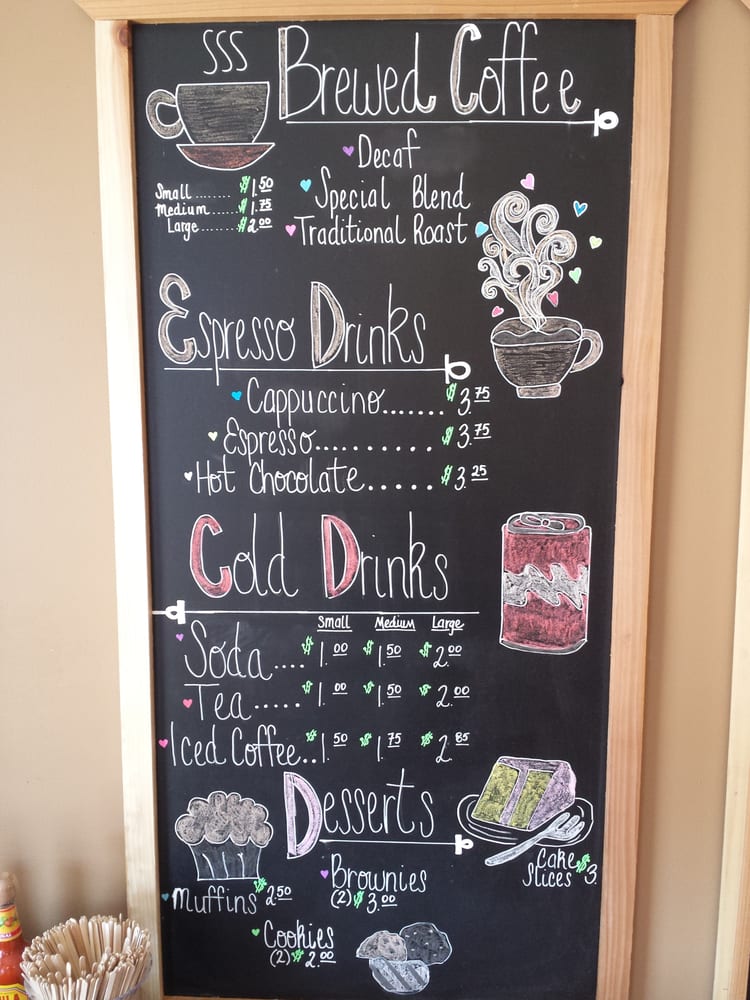 Brewed Coffee
Decaf
Special Blend
Traditional Roast
Small........ $1.50
Medium..... $1.75
Large........ $2.00
Espresso Drinks
Cappuccino....... $3.75
Espresso.......... $3.75
Hot Chocolate...... $3.25
Cold Drinks
Small Medium Large
Soda.... $1.00 $1.50 $2.00
Tea..... $1.00 $1.50 $2.00
Iced Coffee.. $1.50 $1.75 $2.85
Desserts
Cake
Slices $3.
Brownies
(2) $3.00
Muffins $2.50
Cookies
(2) $2.00